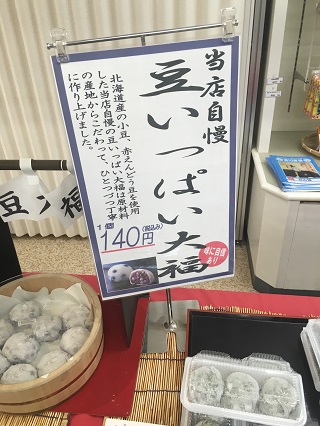 当店自慢
豆いっぱい大福
北海道産の小豆、赤えんどう豆を使用
した当店自慢の豆いっぱい大福は原材料
の産地からこだわって、ひとつづつ丁寧
に作り上げました。
140円
(税込み)
味に自信
あり
豆
福